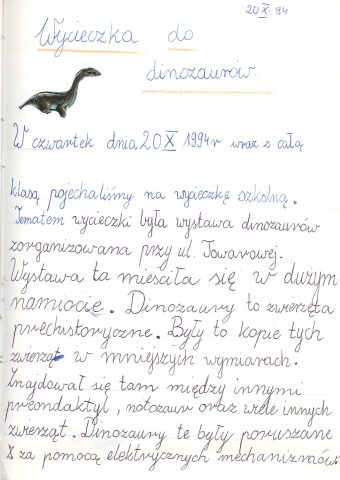 20 X 94
Wycieczka do
dinozaurów.
W czwartek dnia 20 X 1994r wraz z całą
klasą pojechaliśmy na wycieczkę szkolną.
Tematem wycieczki była wystawa dinozaurów
zorganizowana przy ul. Towarowej.
Wystawa ta mieściła się w dużym
namiocie. Dinozaury to zwierzęta
prechistoryczne. Były to kopie tych
zwierząt w mniejszych wymiarach.
Znajdował się tam między innymi
preondaktyl, notozaur oraz wiele innych
zwierząt. Dinozaury te były poruszane
za pomocą elektrycznych mechanizmów.